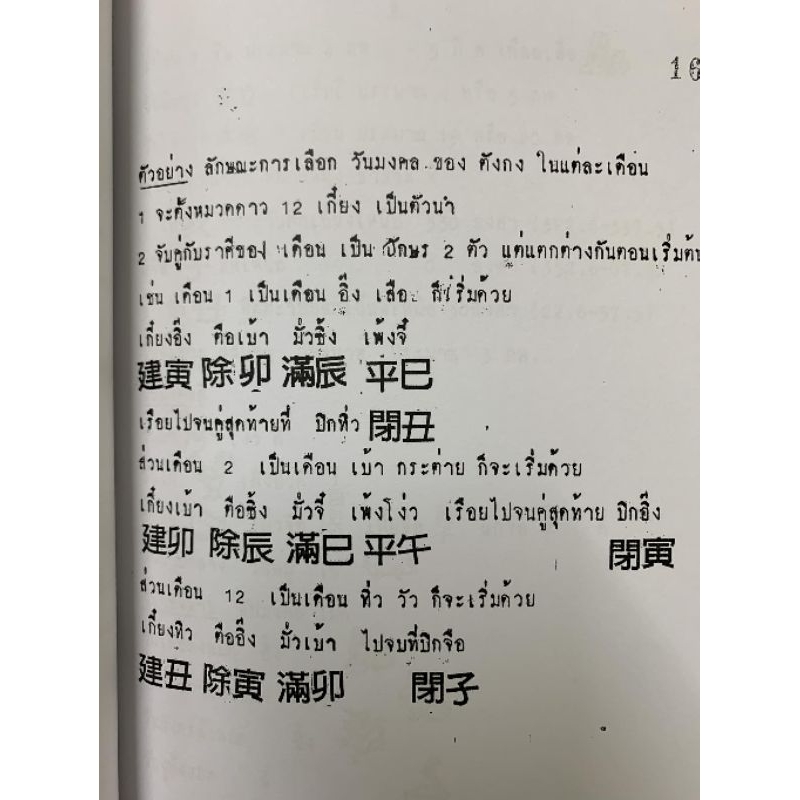 16
ตัวอย่าง ลักษณะการเลือก วันมงคล ของ ตังกง ในแต่ละเดือน
1 จะตั้งหมวดดาว 12 เกี๋ยง เป็นตัวนำ
2 จับคู่กับราศีของ เดือน เป็น อักษร 2 ตัว แต่แตกต่างกันตอนเริ่มต้น
เช่น เดือน 1 เป็นเดือน อิ๊ง เสือ ก็เริ่มด้วย
เกี๋ยงอิ๊ง ตือเบ้า มั่วซิ้ง เพ้งจี๋
建寅 除卯 滿辰 平巳
เรือยไปจนคู่สุดท้ายที่ ปิกทิ่ว 閉丑
ส่วนเดือน 2 เป็นเดือน เบ้า กระต่าย ก็จะเริ่มด้วย
เกี๋ยงเบ้า ตือซิ้ง มั่วจี๋ เพ้งโง่ว เรือยไปจนคู่สุดท้าย ปิกอิ๊ง
建卯 除辰 滿巳 平午 閉寅
ส่วนเดือน 12 เป็นเดือน ทิ่ว วัว ก็จะเริ่มด้วย
เกี๋ยงทิว ตืออิ๊ง มั่วเบ้า ไปจบที่ปิกจือ
建丑 除寅 滿卯 閉子